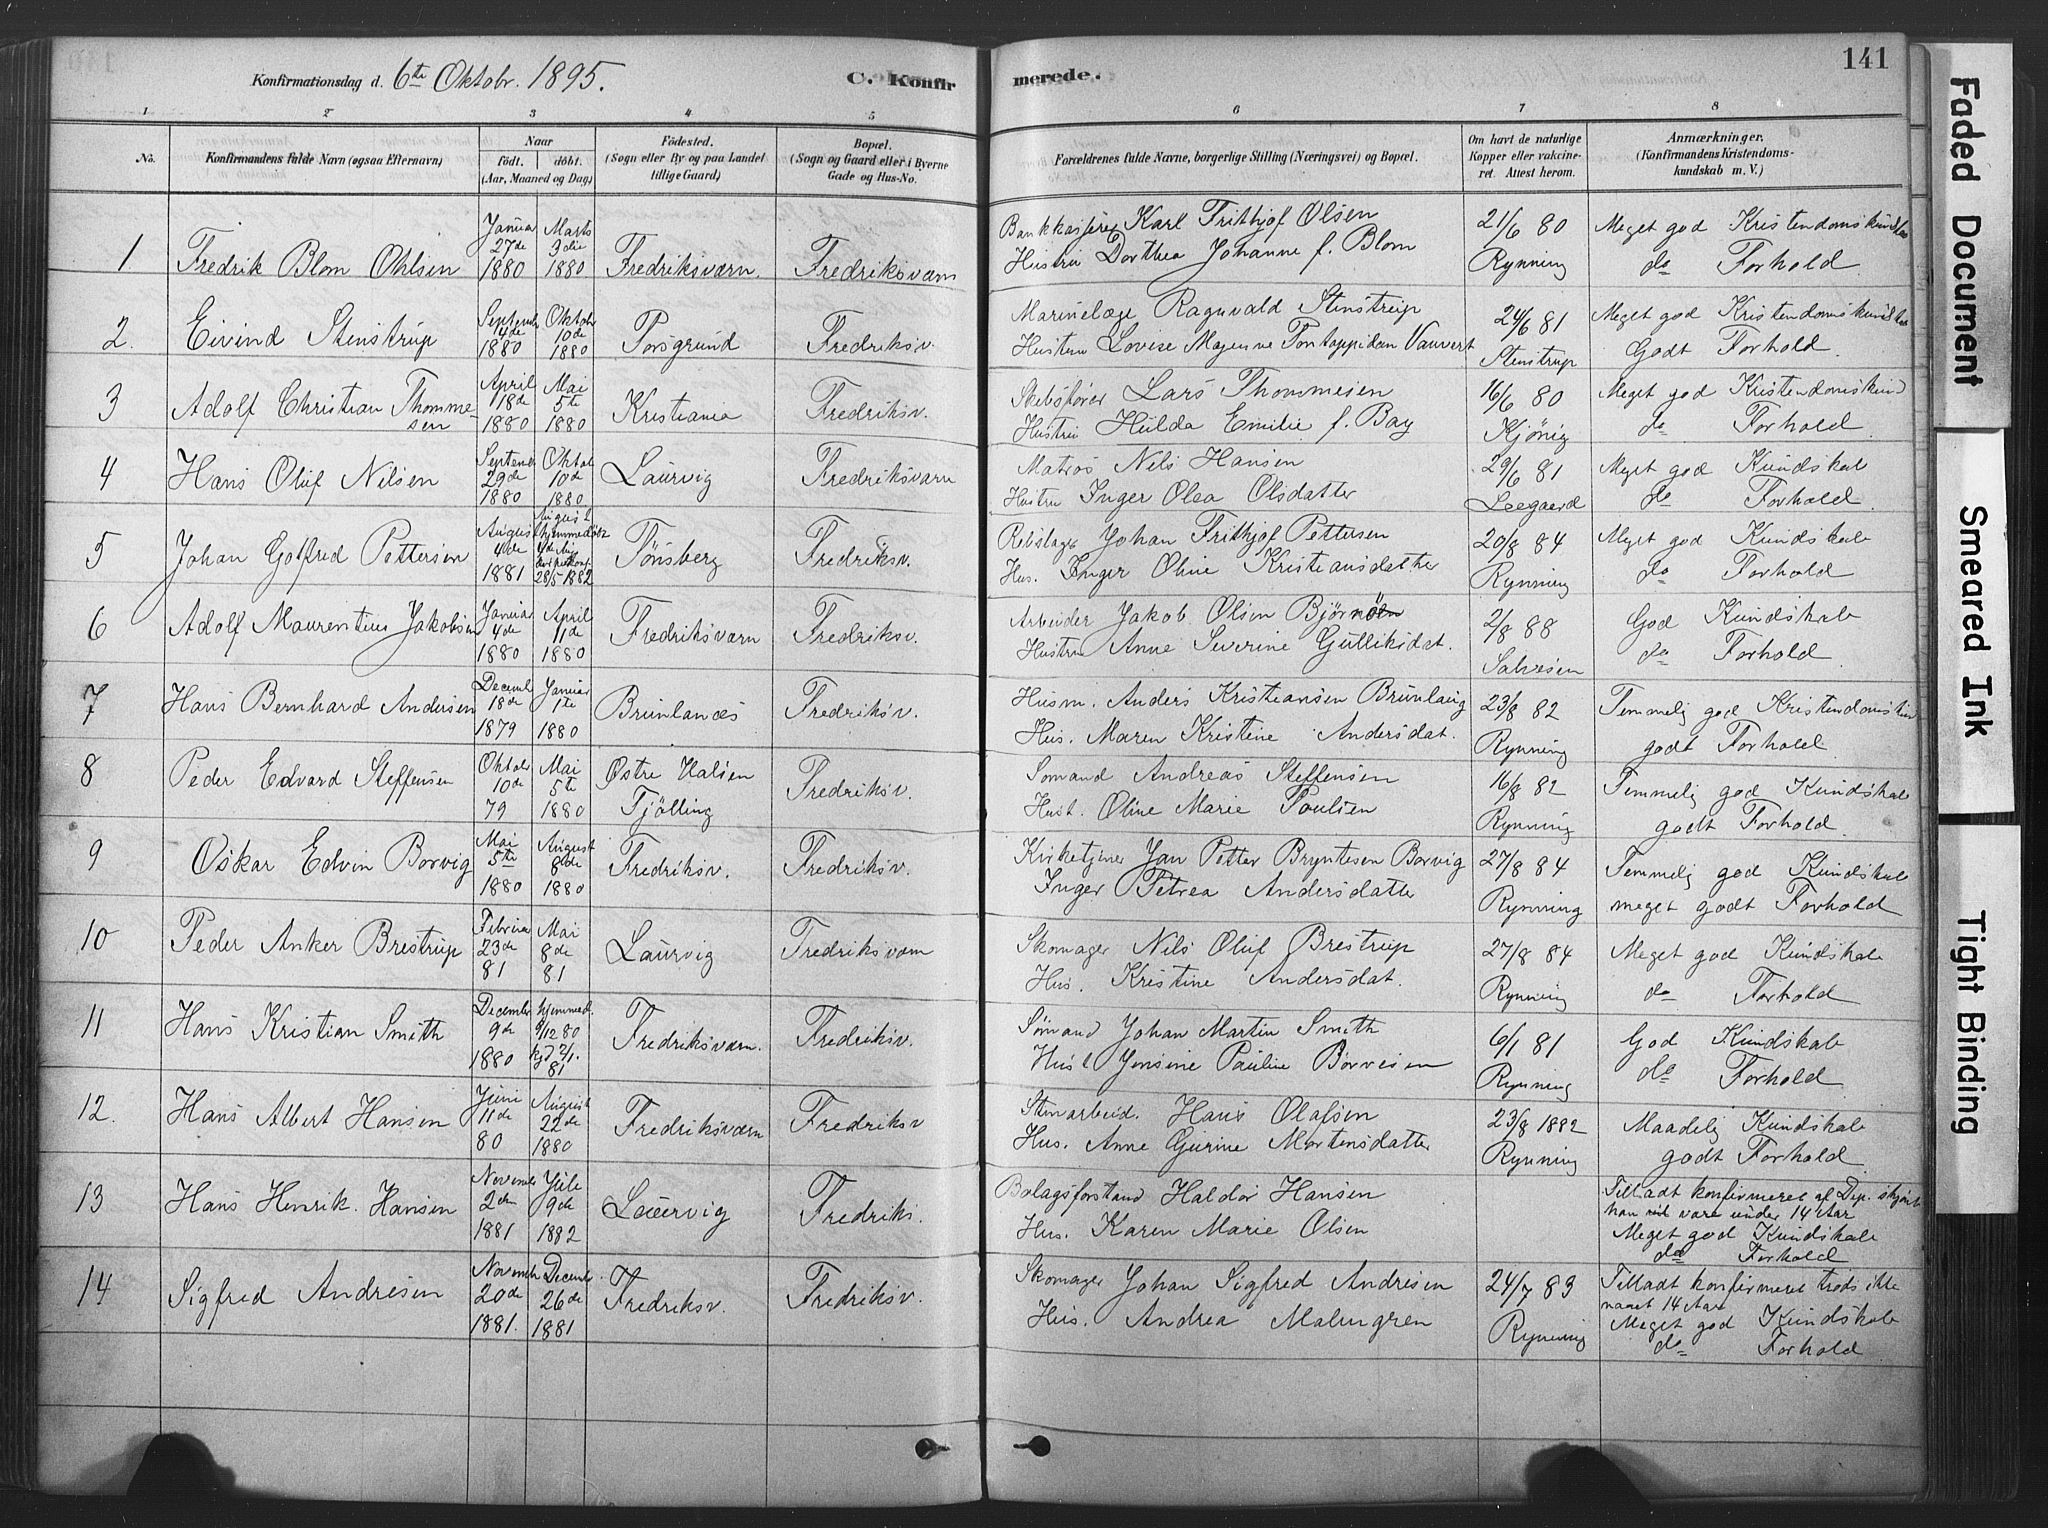 141
Konfirmationsdag d. 6te Oktobr. 1895.
C. Konfirmerede.
1 2 3 4 5 6 7 8
No.
Konfirmandens fulde Navn (ogsaa Efternavn)
Naar
födt. döbt.
(Aar, Maaned og Dag)
Födested.
(Sogn eller By og paa Landet
tillige Gaard)
Bopæl.
(Sogn og Gaard eller i Byerne
Gade og Hus-No.
Forældrenes fulde Navne, borgerlige Stilling (Næringsvei) og Bopæl.
Om havt de naturlige
Kopper eller vakcine-
ret. Attest herom.
Anmærkninger.
(Konfirmandens Kristendoms-
kundskab m. V.)
1 Fredrik Blom Ohlsen
Januar 27de 1880
Marts 3die 1880
Fredriksværn.
Fredriksværn
Bankkasserer Karl Frithjof Olsen
Hustru Dorthea Johanne f. Blom
21/6 80
Rynning
Meget god Kristendomskundskab
do Forhold.
2. Eivind Stenstrup
Septembr 4de 1880
Oktobr 10de 1880
Porsgrund
Fredriksv.
Marinelæge Ragnvald Stenstrup
Hustru Lovise Magenne Pontoppidan Vauvert
24/6 81
Stenstrup
Meget god Kristendomskundskab
Godt Forhold.
3 Adolf Christian Thomme-
sen
April 18de 1880
Mai 5te 1880
Kristiania
Fredriksv.
Skibsfører Lars Thommesen
Hustru Hulda Emilie f. Bay
16/6 80
Kjönig
Meget god Kristendomskund
do Forhold.
4 Hans Oluf Nilsen
Septembr 29de 1880
Oktobr 10de 1880
Laurvig
Fredriksværn
Matros Nils Hansen
Hustru Inger Olea Olsdatter
29/6 81
Leegaard
Meget god Kundskab
do Forhold.
5 Johan Gotfred Pettersen
August 4de 1881
hjemmedöbt
28/5 1882
Tönsberg
Fredriksv.
Rebslager Johan Frithjof Pettersen
Hus. Inger Oline Kristiansdatter
20/8 84
Rynning
Meget god Kundskab
do Forhold
6 Adolf Maurentius Jakobsen
Januar 4de 1880
April 11de 1880
Fredriksværn
Fredriksv.
Arbeider Jakob Olsen
Hustru Anne Severine Gulliksdat.
2/8 88
Salvesen
God Kundskab
do Forhold
7 Hans Bernhard Andersen
Decembr 18de 1879
Januar 1te 1880
Brunlanes
Fredriksv.
Husm. Anders Kristiansen Brunlaug
Hus. Maren Kristine Andersdat.
23/8 82
Rynning
Temmelig god Kristendomskun
godt Forhold.
8 Peder Edvard Steffensen
Oktobr 10de 79
Mai 5te 1880
Østre Halsen
Tjölling
Fredriksv.
Sömand Andreas Steffensen
Hust. Oline Marie Poulsen
16/8 82
Rynning
Temmelig god Kundskab
godt Forhold.
9 Oskar Edvin Borvig
Mai 5te 1880
August 8de 1880
Fredriksv.
Fredriksv.
Kirketjener Jan Petter Bryntesen Borvig
Inger Petrea Andersdatter
27/8 84
Rynning
Temmelig god Kundskab
meget godt Forhold
10 Peder Anker Brestrup
Februar 23de 81
Mai 8de 81
Laurvig
Fredriksværn
Skomager Nils Oluf Brestrup
Hus. Kristine Andersdat.
27/8 84
Rynning
Meget god Kundskab
do Forhold
11 Hans Kristian Smith
December 9de 1880
hjemmed.
9/12 80
81
Fredriksværn.
Fredriksv.
Sömand Johan Martin Smith
Hust Jensine Pauline Borvesen
6/1 81
Rynning
God Kundskab
do Forhold
12. Hans Albert Hansen
Juni 11de 80
August 22de 1880
Fredriksværn
Fredriksv
Stenarbeid. Hans Olafsen
Hus. Anne Gurine Mortensdatter
23/8 1882
Rynning
Maadelig Kundskab
godt Forhold
13 Hans Henrik Hansen
Novembr 2den 1881
Juli 9de 1882
Laurvig
Fredriks.
Bolagsforstand Haldor Hansen
Hus. Karen Marie Olsen
Tilladt konfirmeret af Dep. skjönt
han var under 14 Aar
Meget god Kundskab
do Forhold
14 Sigfred Andresen
Novembr 20de 1881.
Decembr 26de 1881
Fredriksv.
Fredriksv.
Skomager Johan Sigfred Andresen
Hus. Andrea Malmgren
24/7 83
Rynning
Tilladt konfirmeret trods ikke
naaet 14 Aar
Meget god Kundskab
do Forhold
Faded Document
Smeared Ink
Tight Binding